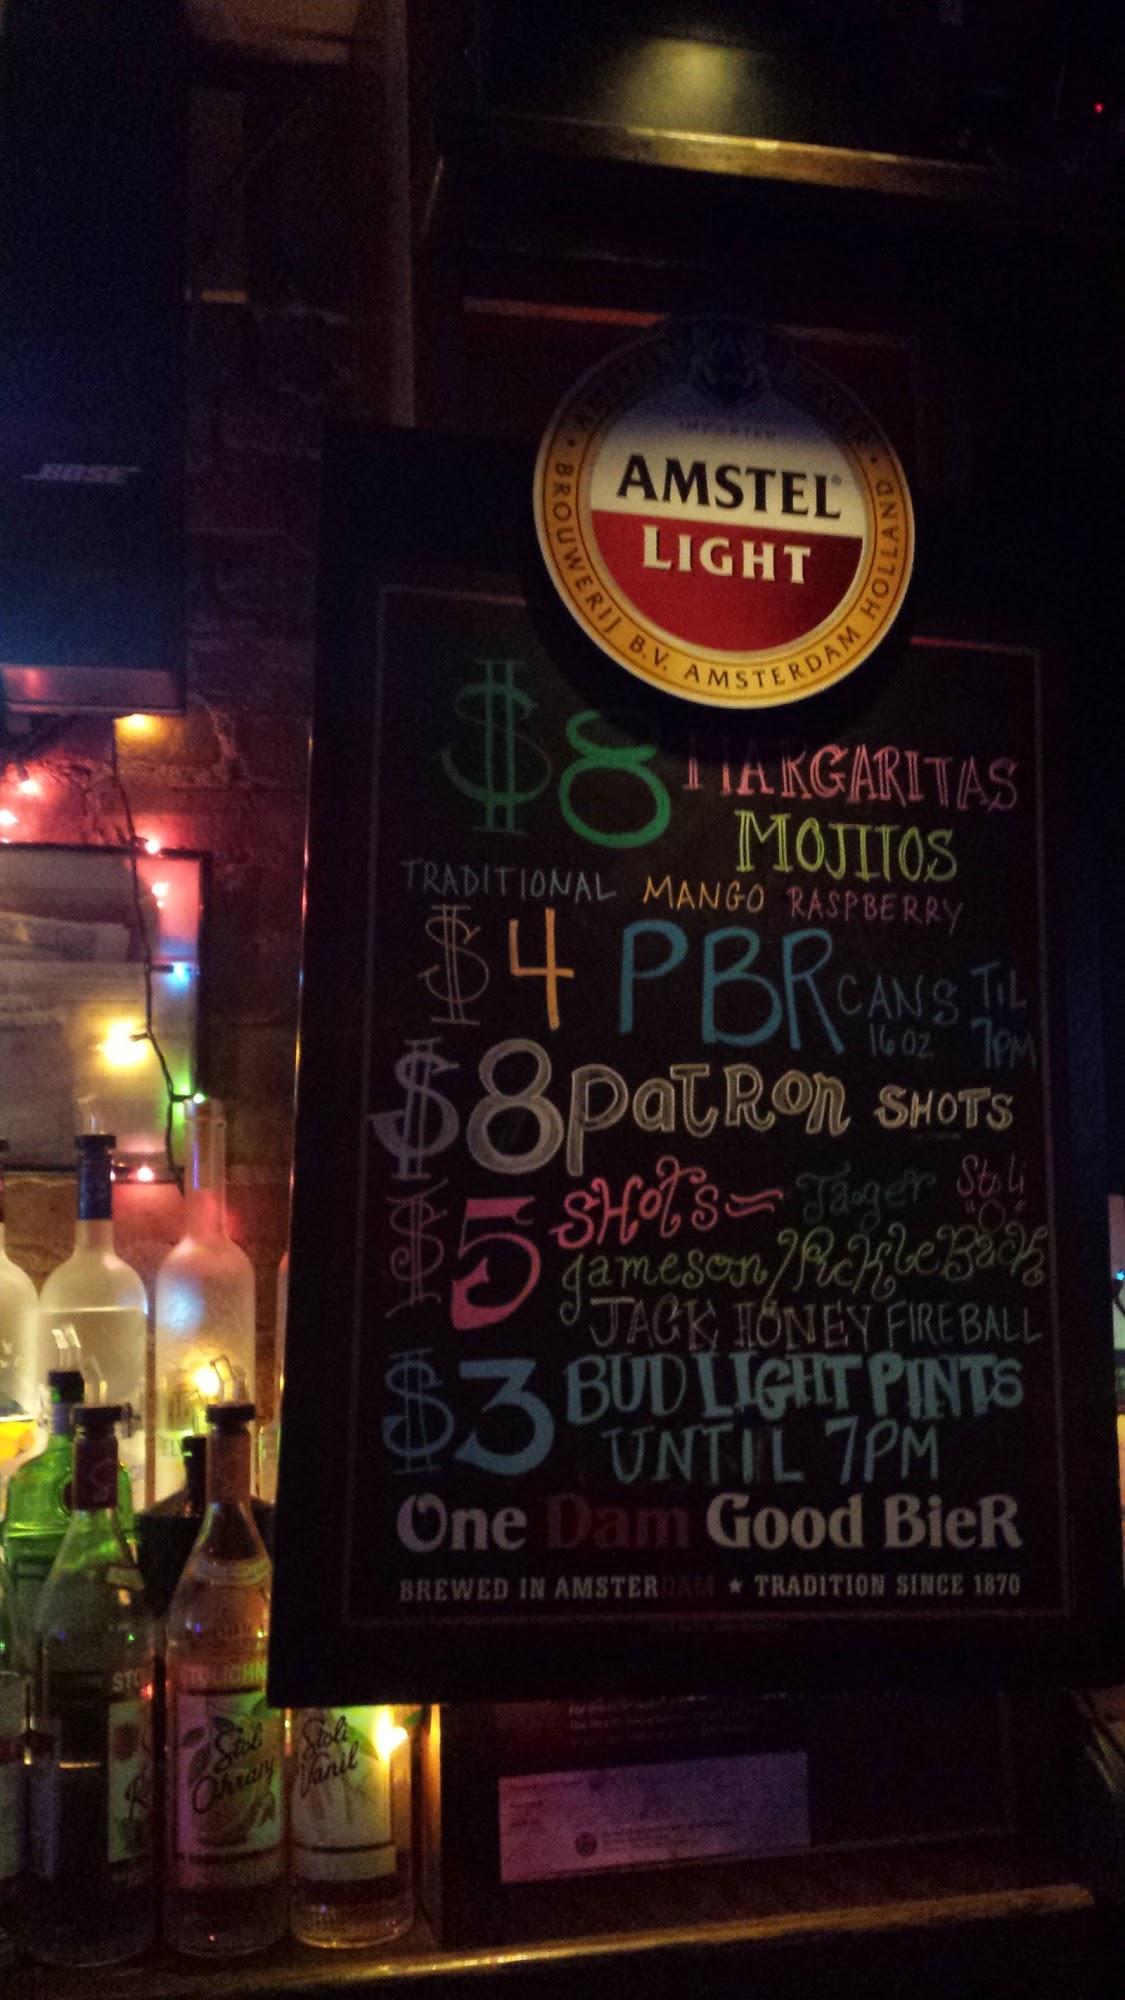 BOSE
IMPORTED
AMSTEL®
LIGHT
BROUWERIJ B.V. AMSTERDAM HOLLAND
$8 MARGARITAS
MOJITOS
TRADITIONAL MANGO RASPBERRY
$4 PBR CANS 16 OZ TIL 7PM
$8 PATRON SHOTS
$5 SHOTS- Jager Stoli "O"
Jameson/PickleBack
JACK HONEY FIREBALL
$3 BUD LIGHT PINTS
UNTIL 7PM
One Dam Good BieR
BREWED IN AMSTERDAM ★ TRADITION SINCE 1870
Stoli
Ohranj
Stoli
Vanil